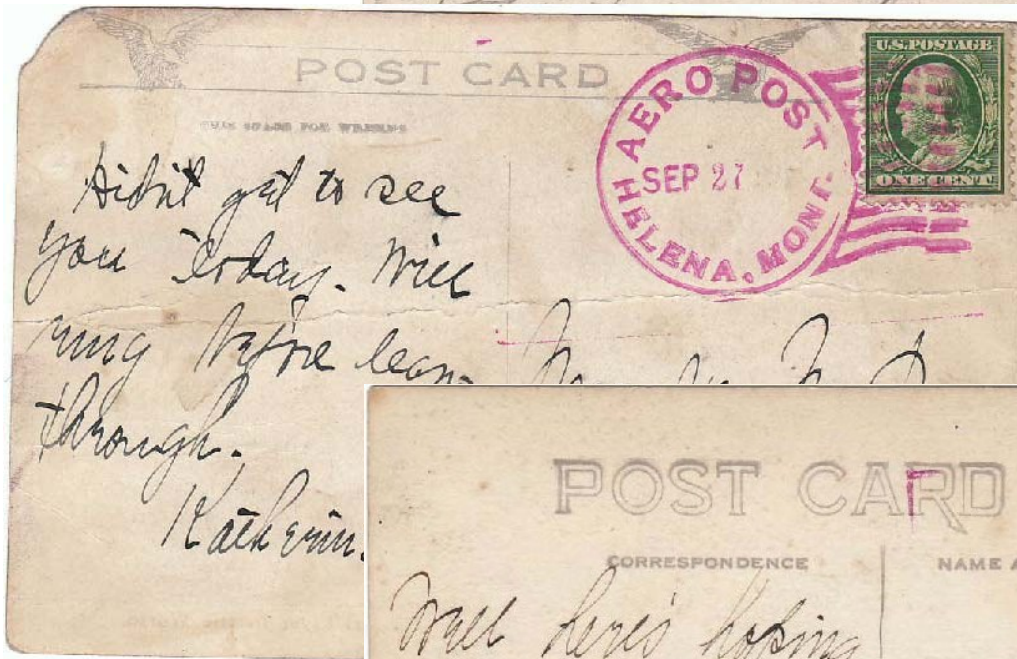 POST CARD
THIS SPACE FOR WRITING
AERO POST
SEP 27
HELENA, MONT.
U.S. POSTAGE
ONE CENT
Didn't get to see
you today. Will
ring before leav-
through.
Katherin.
POST CARD
CORRESPONDENCE
NAME A
Well here's hoping